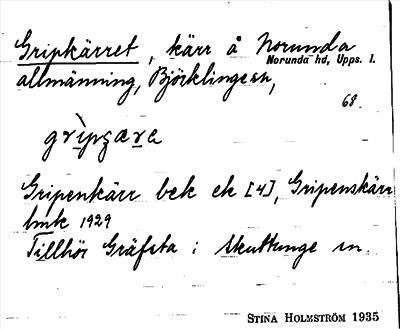 Gripkärret, kärr å Norunda
Norunda hd, Upps. l.
allmänning, Björklinge sn,
68.
Gripenkärr bek ek [4], Gripenskärr
hmk 1929
Tillhör Gräfsta i Skuttunge sn.
STINA HOLMSTRÖM 1935